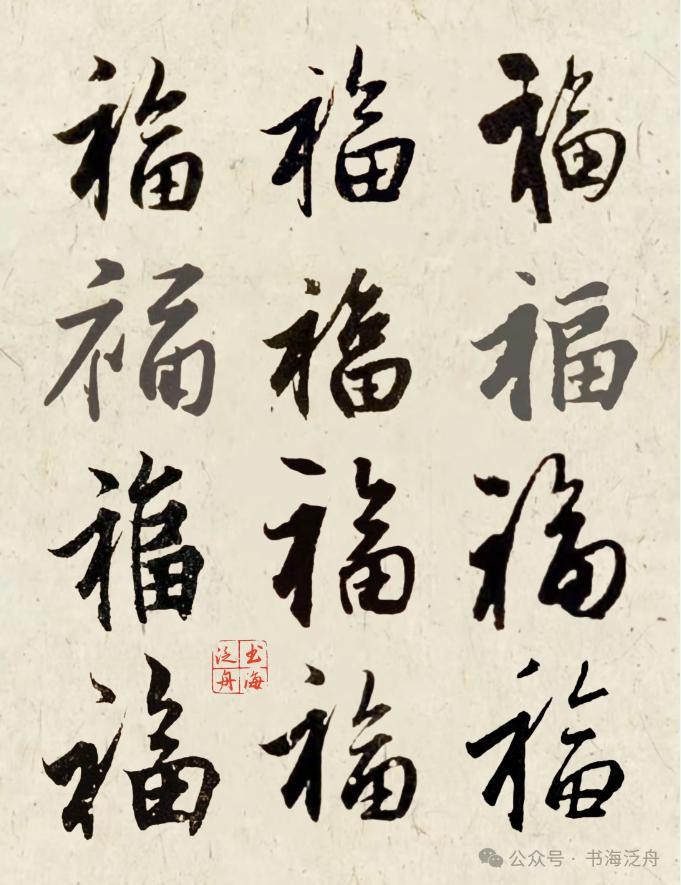 福 福 福
福 福 福
福 福 福
福 福 福
书海
泛舟
公众号 · 书海泛舟